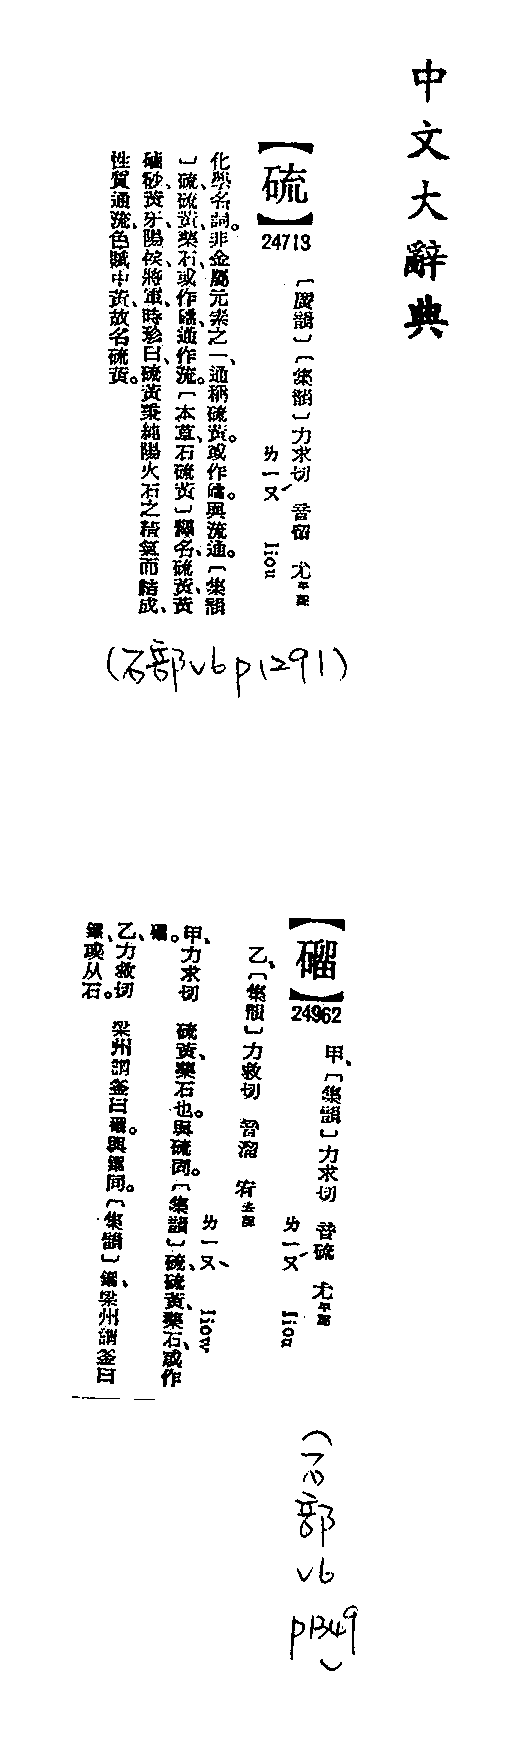 中文大辭典
【硫】
24713
〔廣韻〕〔集韻〕力求切 音留 尤平聲
ㄌㄧㄡˊ liou
化學名詞。非金屬元素之一、通稱硫黃。或作磂。與流通。〔集韻
〕硫、硫黃、藥石、或作磂、通作流。〔本草、石硫黃〕釋名、硫黃、黃
硇砂、黃牙、陽侯、將軍、時珍曰、硫黃秉純陽火石之精氣而結成、
性質通流、色賦中黃、故名硫黃。
(石部v6p1291)
【磂】
24962
甲、〔集韻〕力求切 音硫 尤平聲
ㄌㄧㄡˊ liou
乙、〔集韻〕力救切 音溜 宥去聲
ㄌㄧㄡˋ liow
甲、力求切 硫黃、藥石也。與硫同。〔集韻〕硫、硫黃、藥石、或作
磂。
乙、力救切 梁州謂釜曰磂。與鎦同。〔集韻〕鎦、梁州謂釜曰
鎦、或从石。
(石部v6p1349)